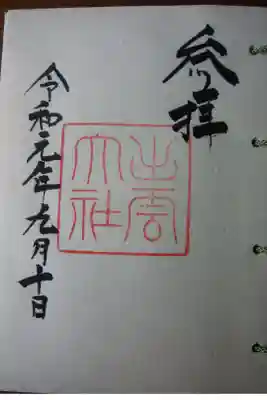 参拝
出雲
大社
令和元年九月十日